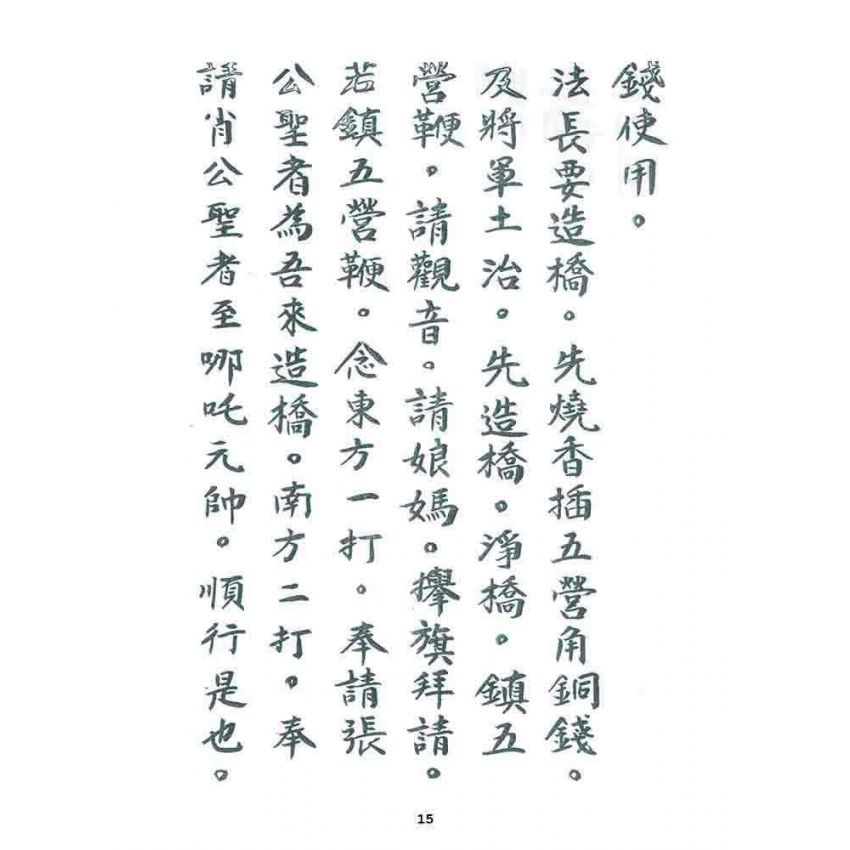 錢使用。
法長要造橋。先燒香插五營角銅錢。
及將軍土治。先造橋。淨橋。鎮五
營鞭。請觀音。請娘媽。攑旗拜請。
若鎮五營鞭。念東方一打。奉請張
公聖者為吾來造橋。南方二打。奉
請肖公聖者至哪吒元帥。順行是也。
15